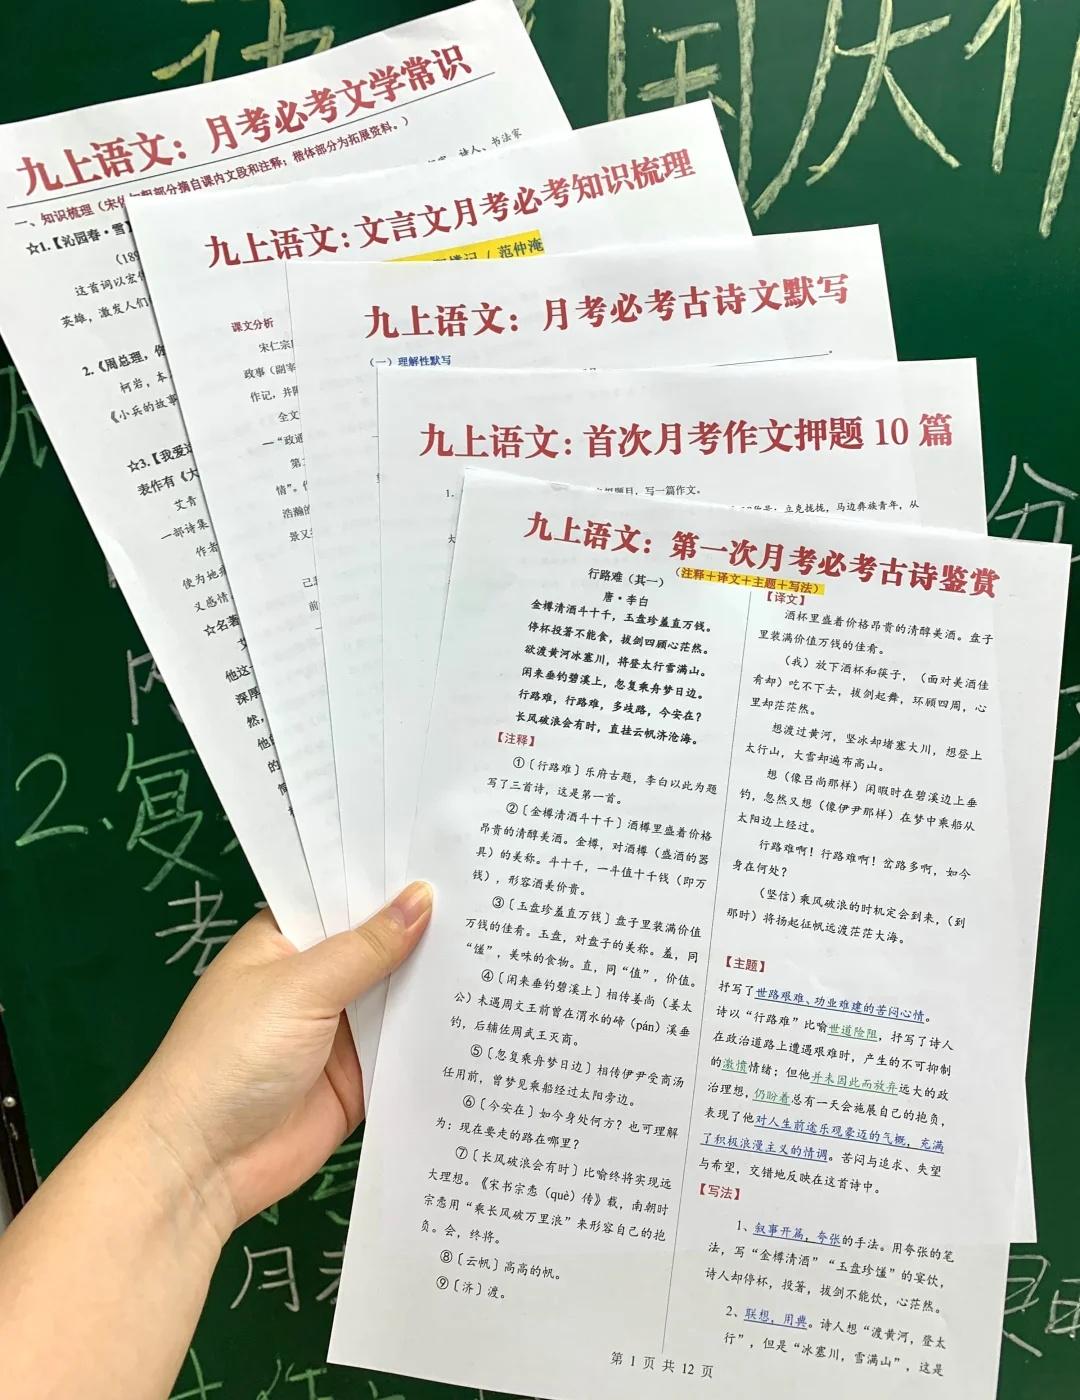 九上语文：月考必考文学常识
一、知识梳理（宋体加粗部分摘自课内文段和注释；楷体部分为拓展资料。）
诗人、书法家
☆1.【沁园春·雪】
（189
这首词以宏
英雄，激发人们
2.《周总理，你
柯岩，本
《小兵的故事
☆3.【我爱这
表作有《大
艾青
一部诗集
作者
使为地
又感情
☆名著
他这
深厚
然，
他的
的
九上语文：文言文月考必考知识梳理
楼记 / 范仲淹
课文分析
宋仁宗
政事（副宰
作记，并
全文
—“政通
第
情”。
浩瀚的
景又
前
九上语文：月考必考古诗文默写
（一）理解性默写
九上语文：首次月考作文押题 10 篇
1.
题目，写一篇作文。
立克拢拢，马边彝族青年，从
大
九上语文：第一次月考必考古诗鉴赏
（注释＋译文＋主题＋写法）
行路难（其一）
唐·李白
金樽清酒斗十千，玉盘珍羞直万钱。
停杯投箸不能食，拔剑四顾心茫然。
欲渡黄河冰塞川，将登太行雪满山。
闲来垂钓碧溪上，忽复乘舟梦日边。
行路难，行路难，多歧路，今安在？
长风破浪会有时，直挂云帆济沧海。
【注释】
①〔行路难〕乐府古题，李白以此为题
写了三首诗，这是第一首。
②〔金樽清酒斗十千〕酒樽里盛着价格
昂贵的清醇美酒。金樽，对酒樽（盛酒的器
具）的美称。斗十千，一斗值十千钱（即万
钱），形容酒美价贵。
③〔玉盘珍羞直万钱〕盘子里装满价值
万钱的佳肴。玉盘，对盘子的美称。羞，同
“馐”，美味的食物。直，同“值”，价值。
④〔闲来垂钓碧溪上〕相传姜尚（姜太
公）未遇周文王前曾在渭水的磻（pán）溪垂
钓，后辅佐周武王灭商。
⑤〔忽复乘舟梦日边〕相传伊尹受商汤
任用前，曾梦见乘船经过太阳旁边。
⑥〔今安在〕如今身处何方？也可理解
为：现在要走的路在哪里？
⑦〔长风破浪会有时〕比喻终将实现远
大理想。《宋书宗悫（què）传》载，南朝时
宗悫用“乘长风破万里浪”来形容自己的抱
负。会，终将。
⑧〔云帆〕高高的帆。
⑨〔济〕渡。
【译文】
酒杯里盛着价格昂贵的清醇美酒。盘子
里装满价值万钱的佳肴。
（我）放下酒杯和筷子，（面对美酒佳
肴却）吃不下去，拔剑起舞，环顾四周，心
里却茫茫然。
想渡过黄河，坚冰却堵塞大川，想登上
太行山，大雪却遍布高山。
想（像吕尚那样）闲暇时在碧溪边上垂
钓，忽然又想（像伊尹那样）在梦中乘船从
太阳边上经过。
行路难啊！行路难啊！岔路多啊，如今
身在何处？
（坚信）乘风破浪的时机定会到来，（到
那时）将扬起征帆远渡茫茫大海。
【主题】
抒写了世路艰难、功业难建的苦闷心情。
诗以“行路难”比喻世道险阻，抒写了诗人
在政治道路上遭遇艰难时，产生的不可抑制
的激愤情绪；但他并未因此而放弃远大的政
治理想，仍盼着总有一天会施展自己的抱负，
表现了他对人生前途乐观豪迈的气概，充满
了积极浪漫主义的情调。苦闷与追求、失望
与希望，交错地反映在这首诗中。
【写法】
1、叙事开篇，夸张的手法。用夸张的笔
法，写“金樽清酒”“玉盘珍馐”的宴饮，
诗人却停杯，投箸，拔剑不能饮，心茫然。
2、联想，用典。诗人想“渡黄河，登太
行”，但是“冰塞川，雪满山”，这是
第 1 页 共 12 页
国庆作
份
2.复
考
月考